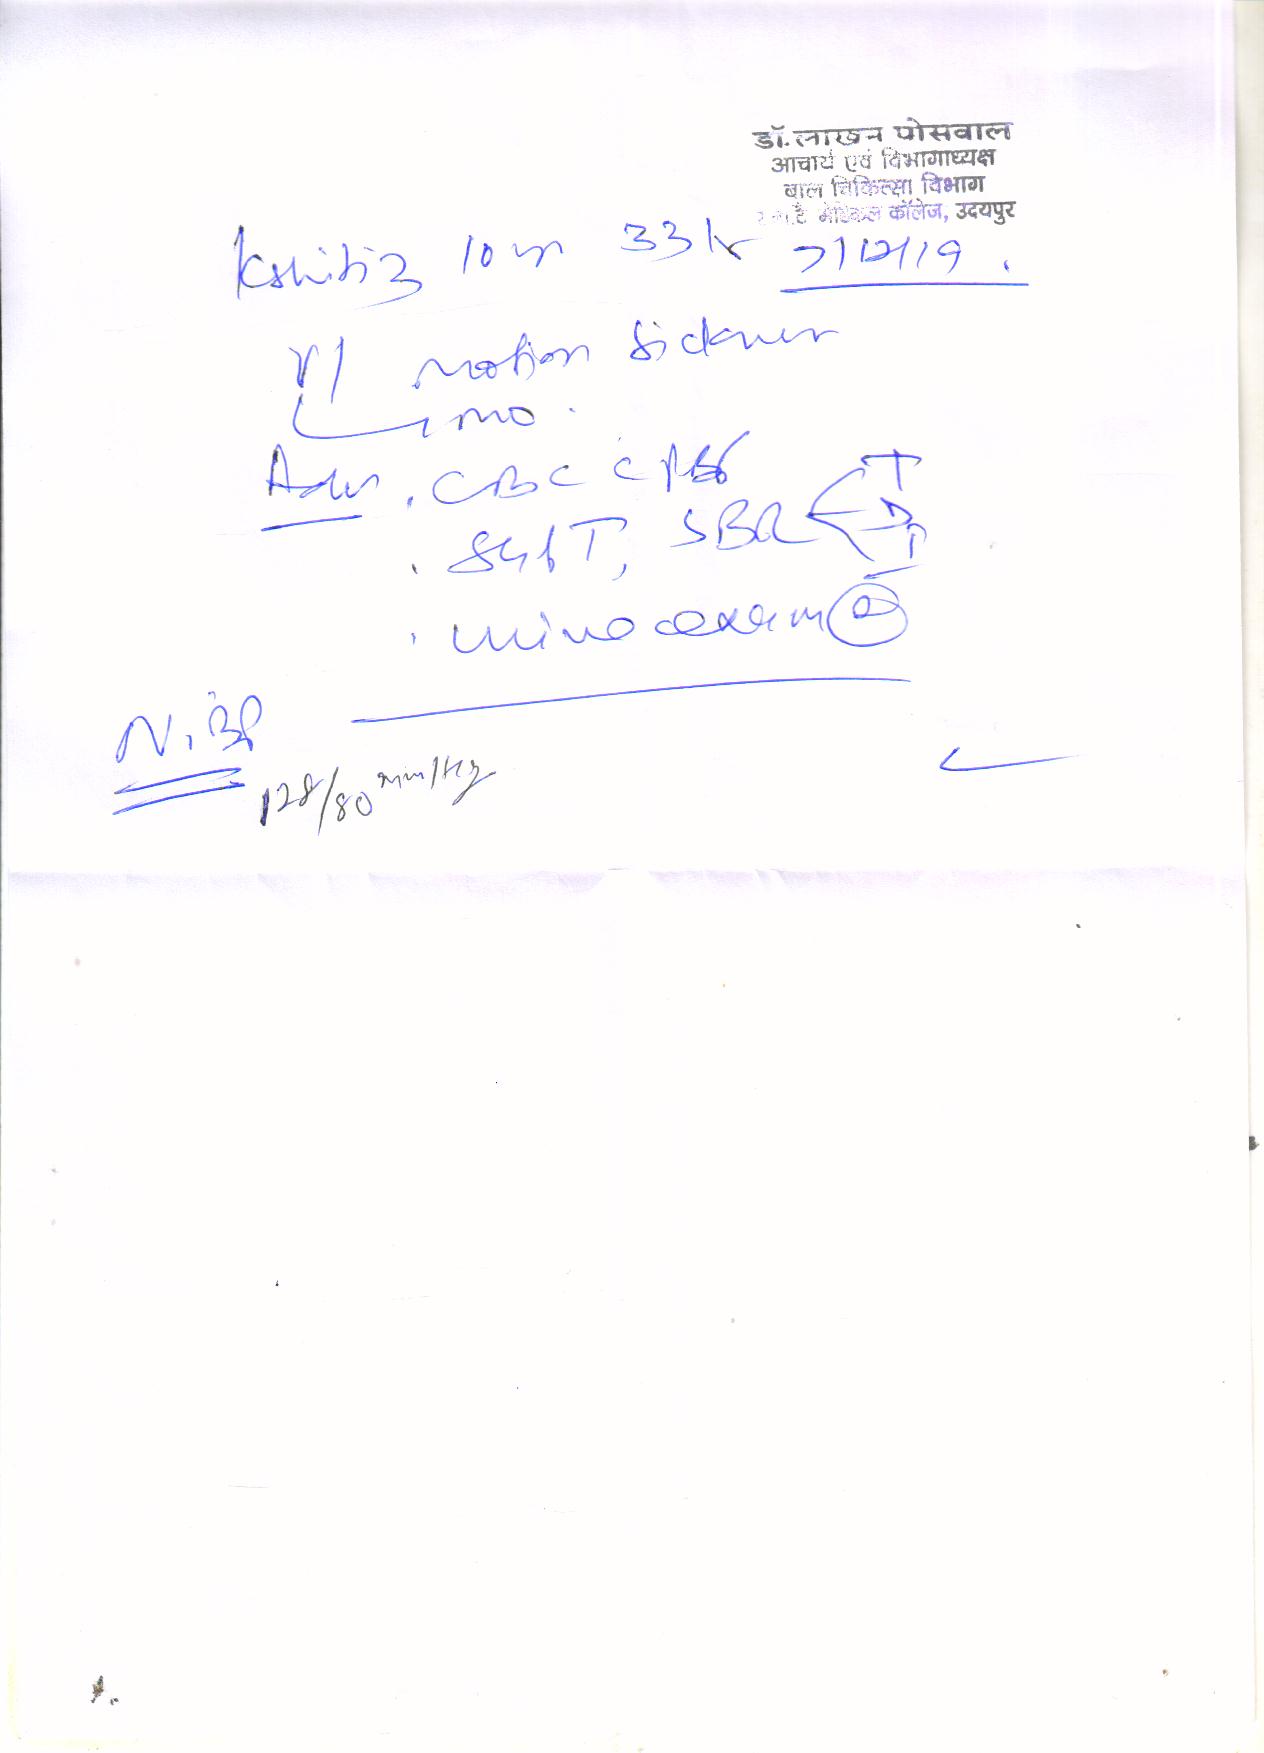 डॉ. लाखन पोसवाल
आचार्य एवं विभागाध्यक्ष
बाल चिकित्सा विभाग
मेडिकल कॉलेज, उदयपुर
Kshitiz 10 33 7/12/19
motion sickness
Adv . CBC c PBF
. SGPT, SBR < T D I
. urine exam
N.BP
128/80 mm/Hg